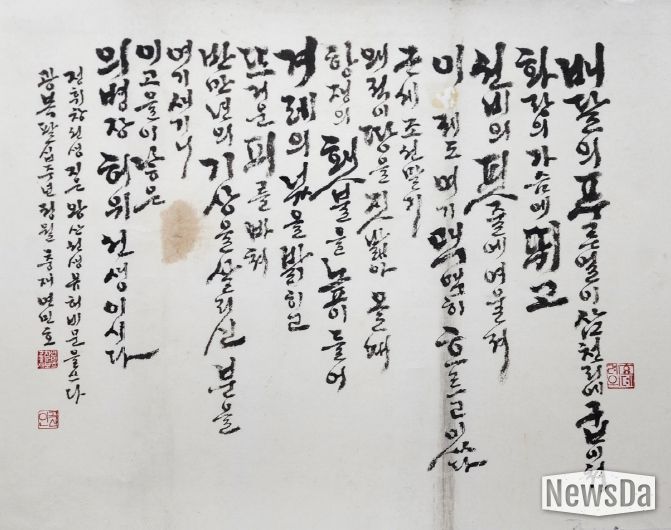 배달의 푸른 얼이 삼천리에 굽이쳐
화랑의 가슴에 뛰고
선비의 핏줄에 여울져
이제도 여기 맥맥히 흐르고 있다
근세 조선 말기
왜적이 땅을 짓밟아 올 때
항쟁의 횃불을 높이 들어
겨레의 넋을 밝히고
뜨거운 피를 바쳐
반만년의 기상을 살리신 분을
여기 새기니
이 고을이 낳은
의병장 허위 선생이시다
정휘창 선생 짓은 왕산 선생 유허비문을 쓰다
광복 팔십주년 정월
NewsDa